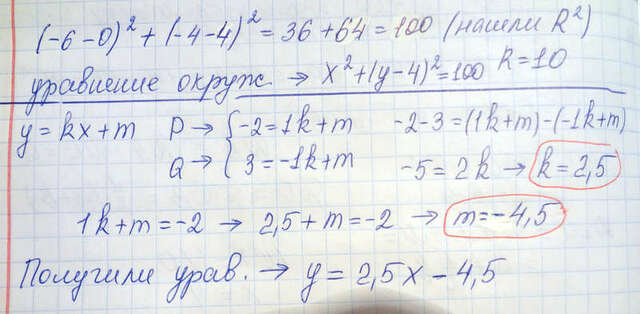 (-6-0)² + (-4-4)² = 36 + 64 = 100 (нашли R²)
уравнение окруж. → x² + (y-4)² = 100 R = 10
y = kx + m P → { -2 = 1k + m -2-3 = (1k+m) - (-1k+m)
Q → { 3 = -1k + m -5 = 2k → k = 2,5
1k + m = -2 → 2,5 + m = -2 → m = -4,5
Получили урав. → y = 2,5x - 4,5